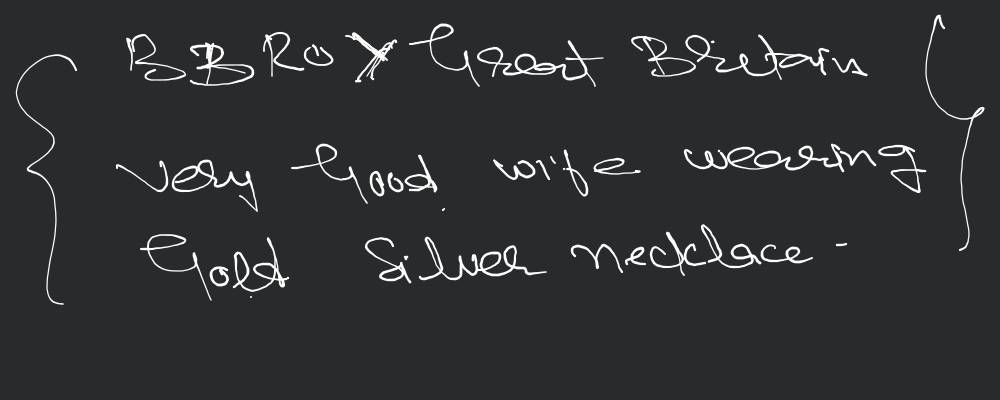 BBROY Great Britain
Very Good wife wearing
Gold Silver necklace -